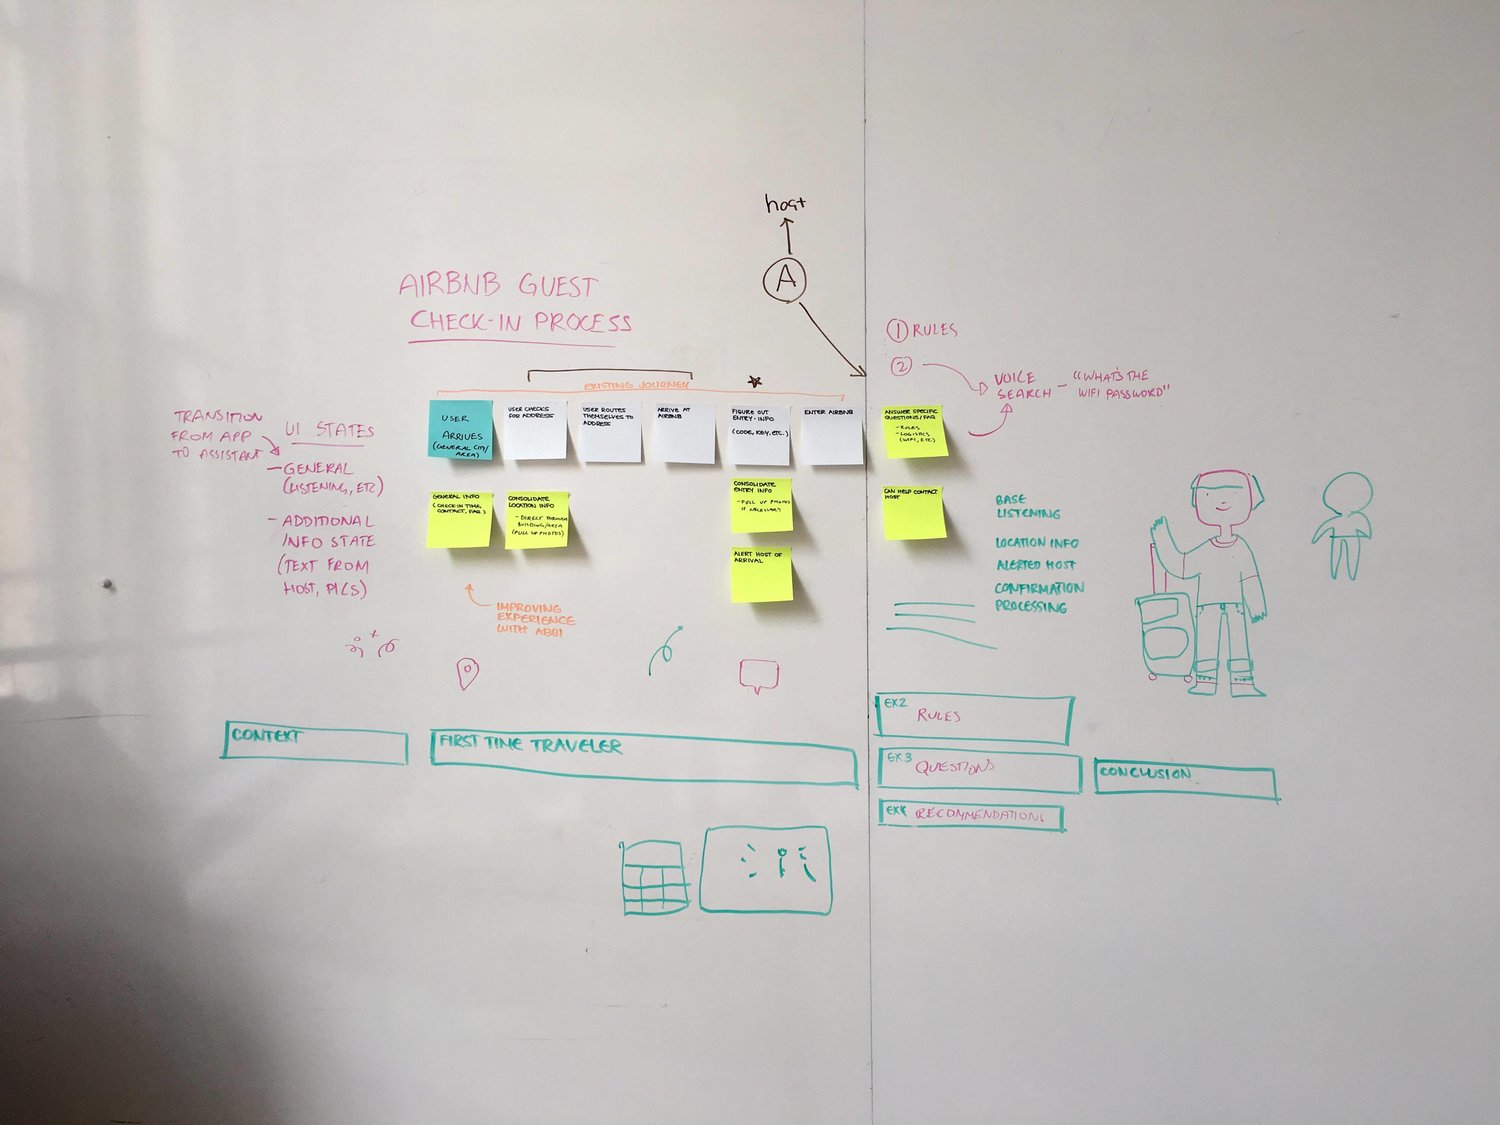 host
A
AIRBNB GUEST
CHECK-IN PROCESS
① RULES
②
VOICE
SEARCH – "WHAT'S THE
WIFI PASSWORD"
EXISTING JOURNEY
TRANSITION
FROM APP
TO ASSISTANT
UI STATES
– GENERAL
(LISTENING, ETC)
– ADDITIONAL
INFO STATE
(TEXT FROM
HOST, PICS)
USER
ARRIVES
(GENERAL CITY/
AREA)
USER CHECKS
FOR ADDRESS
USER ROUTES
THEMSELVES TO
ADDRESS
ARRIVE AT
AIRBNB
FIGURE OUT
ENTRY-INFO
(CODE, KEY, ETC.)
ENTER AIRBNB
ANSWER SPECIFIC
QUESTIONS/FAQ
- RULES
- LOGISTICS
(WIFI, ETC)
GENERAL INFO
(CHECK-IN TIME,
CONTACT, FAQ)
CONSOLIDATE
LOCATION INFO
- DIRECT THROUGH
BUILDING/AREA
(PULL UP PHOTOS)
CONSOLIDATE
ENTRY INFO
- PULL UP PHOTOS
IF NECESSARY?
ALERT HOST OF
ARRIVAL
CAN HELP CONTACT
HOST
BASE
LISTENING
LOCATION INFO
ALERTED HOST
CONFIRMATION
PROCESSING
IMPROVING
EXPERIENCE
WITH ABBI
CONTEXT
FIRST TIME TRAVELER
EX2 RULES
EX3 QUESTIONS
EX4 RECOMMENDATIONS
CONCLUSION